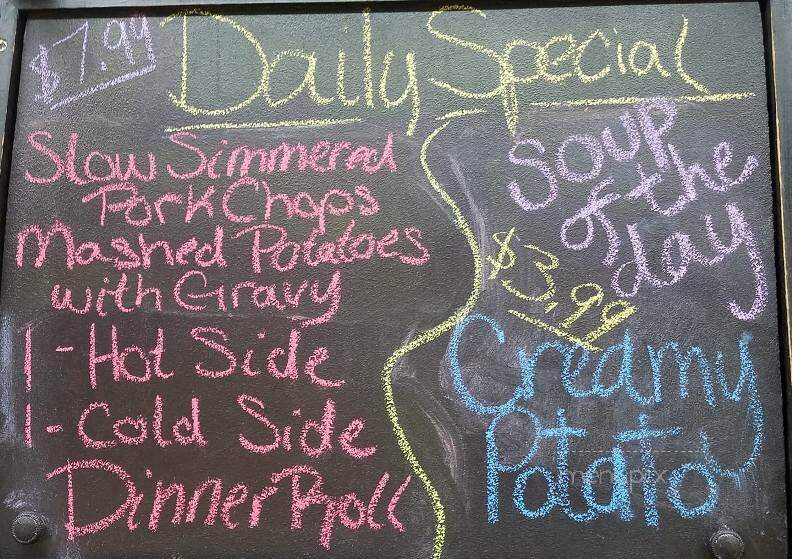 $7.99
Daily Special
Slow Simmered
Pork Chops
Mashed Potatoes
with Gravy
1-Hot Side
1-Cold Side
Dinner Roll
Soup
of the
day
$3.99
Creamy
Potato
menupix